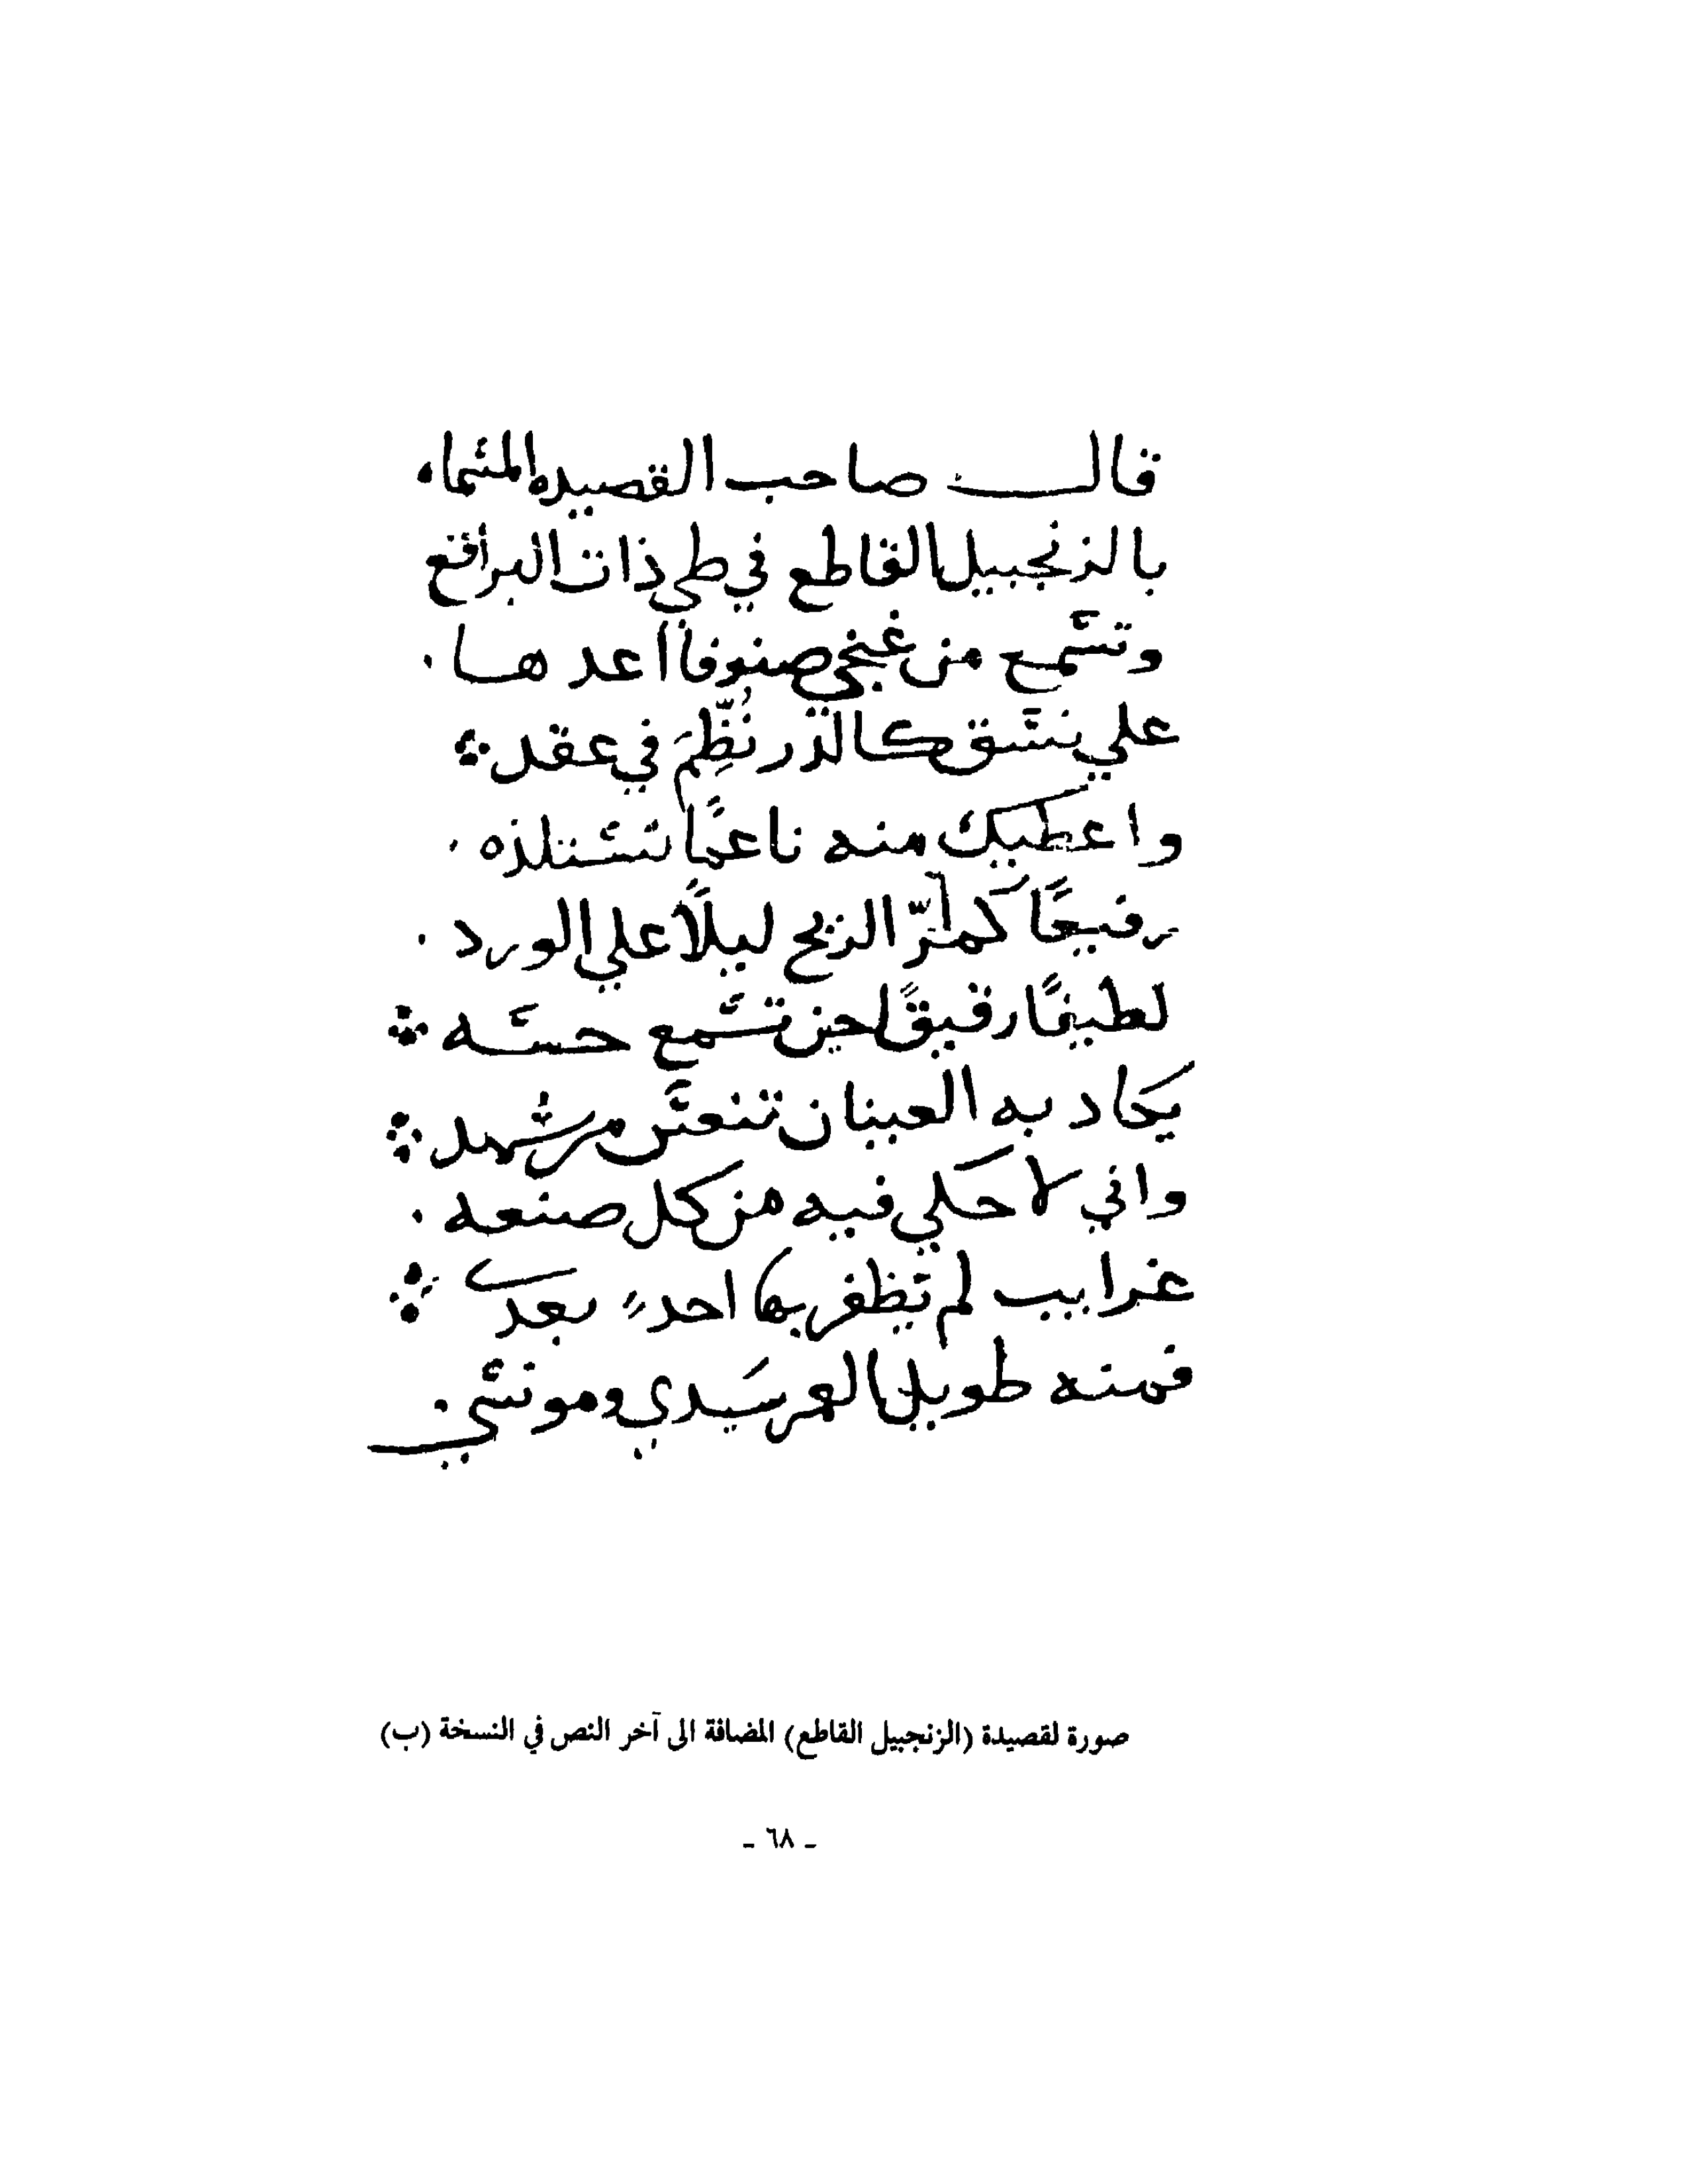 قال صاحب القصيده المسماه
بالزنجبيل القاطع في طي ذات البراقع
وتسمع من غنجي صنوفا اعدها .
علي نسق كالدّر نُظِّمَ في عقد ؞
واعطيك منه ناعمًا تستلذه .
رفيعًا كمرّ الريح ليلًا علي الورد .
لطيفًا رقيقًا حين تسمع حسه ؞
يكاد به العينان تنعس من شهد ؞
واني لاحكي فيه من كل صنعه .
غرايب لم يظفر بها احدٍ بعدي ؞
فمنه طويل سَيدي وموتشي .
صورة لقصيدة (الزنجبيل القاطع) المضافة الى آخر النص في النسخة (ب)
- ٦٨ -